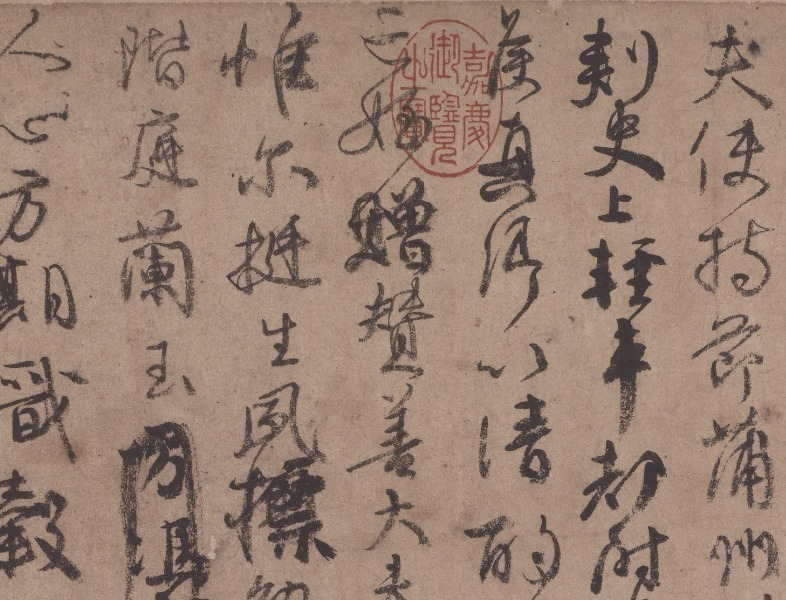 夫使持節蒲州
刺史上輕車都尉
侯真卿以清酌
亡姪贈贊善大夫
惟爾挺生夙標幼
階庭蘭玉方憑
人心方期戩穀
嘉慶御覽之寶